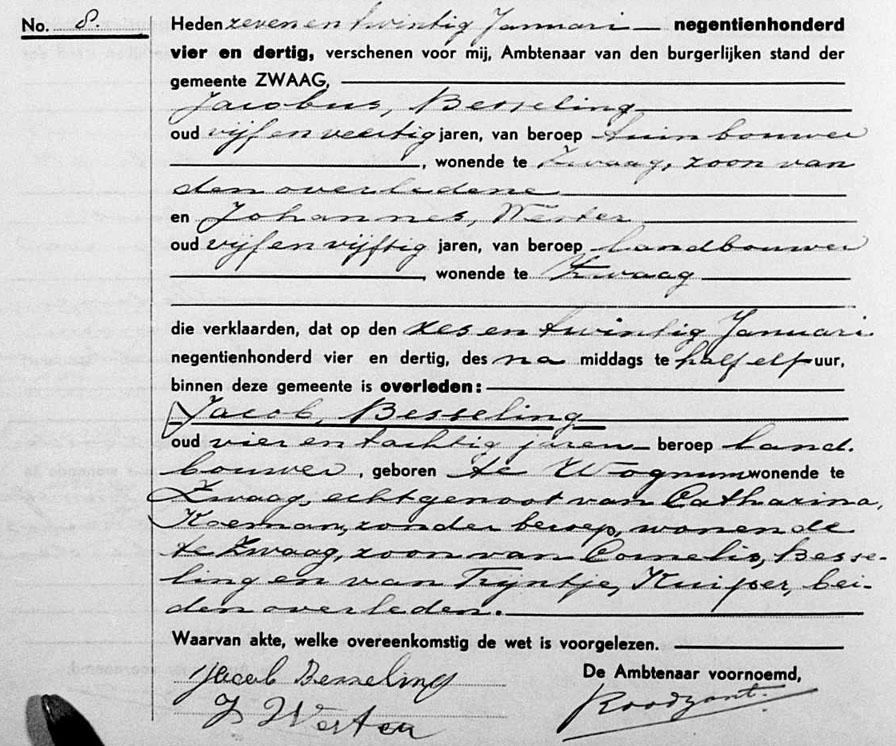 No. 8. Heden zeven en twintig Januari negentienhonderd
vier en dertig, verschenen voor mij, Ambtenaar van den burgerlijken stand der
gemeente ZWAAG,
Jacobus, Besseling
oud vijf en veertig jaren, van beroep tuinbouwer
, wonende te Zwaag, zoon van
den overledene
en Johannes, Wester
oud vijf en vijftig jaren, van beroep landbouwer
, wonende te Zwaag
die verklaarden, dat op den zes en twintig Januari
negentienhonderd vier en dertig, des na middags te half elf uur,
binnen deze gemeente is overleden:
Jacob, Besseling
oud vier en tachtig jaren beroep land-
bouwer, geboren te Wognum wonende te
Zwaag, echtgenoot van Catharina,
Koeman, zonder beroep, wonende
te Zwaag, zoon van Cornelis, Besse-
ling en van Trijntje, Kuiper, bei-
den overleden.
Waarvan akte, welke overeenkomstig de wet is voorgelezen.
De Ambtenaar voornoemd,
Jacob Besseling
J Wester
Roodzant.